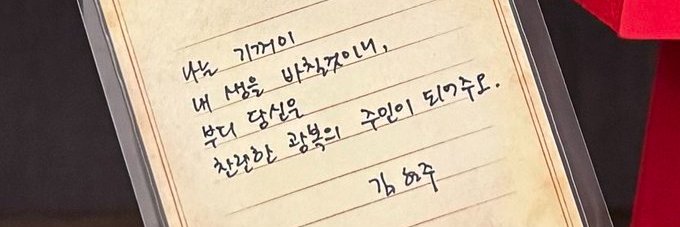 나는 기꺼이
내 생을 바칠것이니,
부디 당신은
찬란한 광복의 주인이 되어주오.
김 현주